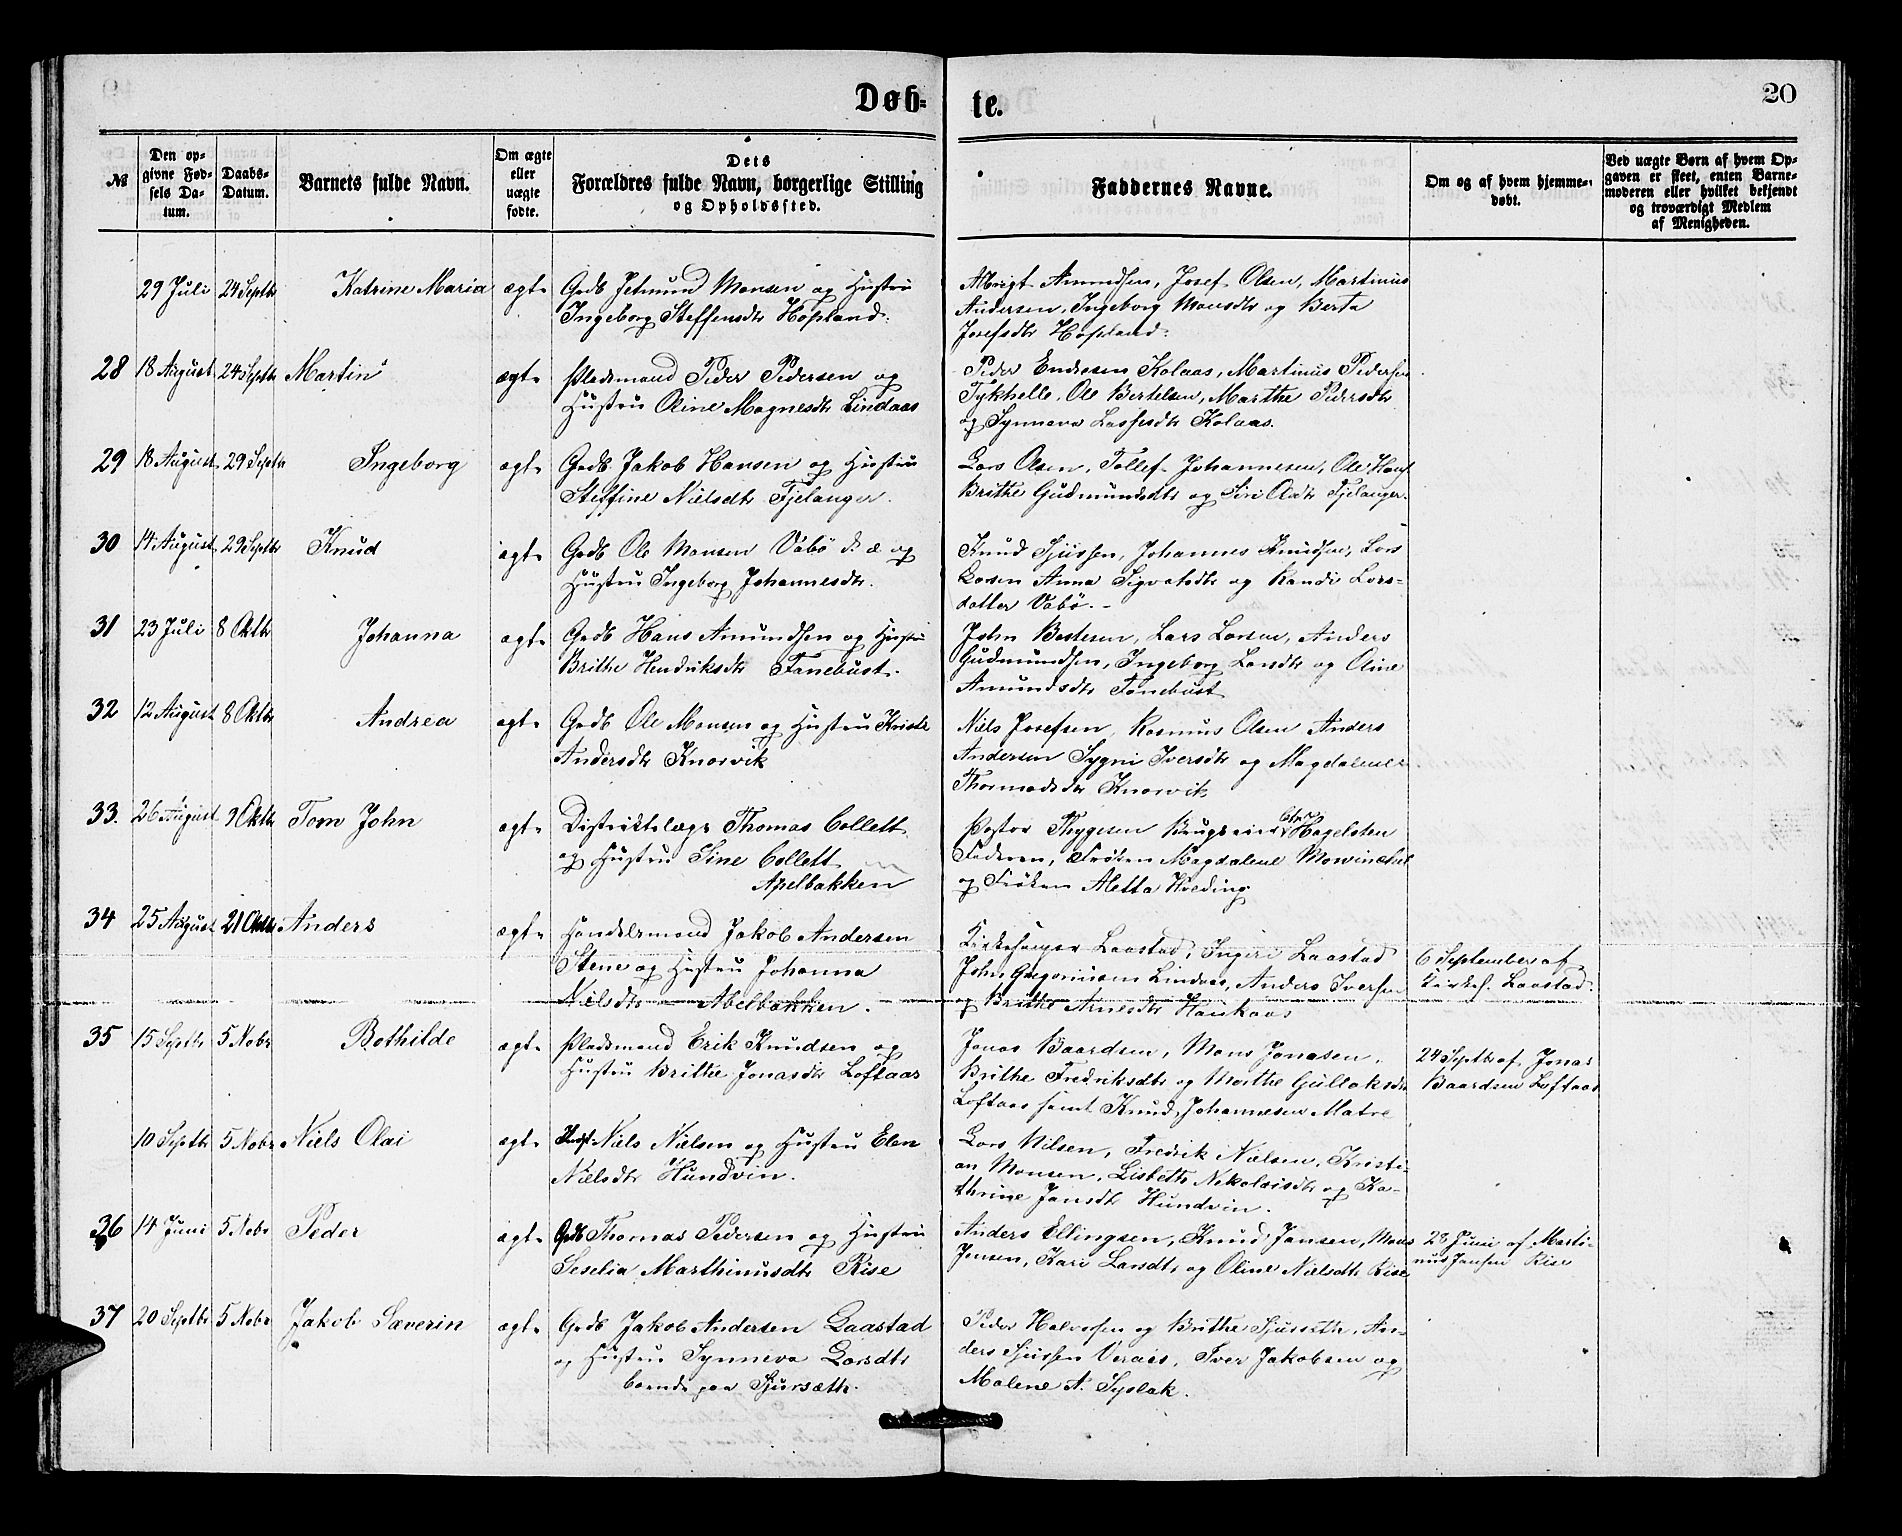 Døb-
te.
20
№
Den op-
givne Fød-
sels Da-
tum.
Daabs-
Datum.
Barnets fulde Navn.
Om ægte
eller
uægte
fødte.
Dets
Forældres fulde Navn, borgerlige Stilling
og Opholdssted.
Faddernes Navne.
Om og af hvem hjemme-
døbt.
Ved uægte Børn af hvem Op-
gaven er skeet, enten Barne-
moderen eller hvilket bekjendt
og troværdigt Medlem
af Menigheden.
29 Juli 24 Septbr Katrine Maria ægte
Grdb Jetmund Monsen og Hustru
Ingeborg Steffensdtr Hopland.
Amundsen, Josef Olsen, Martinus
Andersen, Ingeborg Monsdtr og Berta
Josefsdtr Hopland.
28 18 August 24 Septbr Martin ægte
Pladsmand Peder Pedersen og
Hustru Oline Magnesdtr Lindaas
Peder Endresen Kolaas, Martinus Pedersen
Tykhelle, Ole Bertelsen, Marthe Pedersdtr
og Synneva Lassesdtr Kolaas.
29 18 August 29 Septbr Ingeborg ægte
Grdb Jakob Hansen og Hustru
Steffine Nielsdtr Fjelanger.
Lars Olsen, Tollef Johannesen, Ole Hans
Brithe Gudmundsdtr og Siri Olsdtr Fjelanger.
30 14 August 29 Septbr Knud ægte
Grdb Ole Monsen Vabø d. æ og
Hustru Ingeborg Johannesdtr.
Knud Sjursen, Johannes Knudsen, Lars
Larsen Anna Sigvatsdtr og Randi Lars-
datter Vabø.
31 23 Juli 8 Oktbr Johanna ægte
Grdb Hans Amundsen og Hustru
Brithe Hendriksdtr Fanebust.
John Bertesen, Lars Larsen, Anders
Gudmundsen, Ingeborg Larsdtr og Oline
Amundsdtr Fanebust
32 12 August 8 Oktbr Andrea ægte
Grdb Ole Monsen og Hustru Kristi
Andersdtr Knarvik
Niels Josefsen, Rasmus Olsen Anders
Andersen Sygni Iversdtr og Magdalene
Thormodsdtr Knarvik
33. 26 August 9 Oktbr Tom John ægte
Distriktslæge Thomas Collett
og Hustru Sine Collett
Apelbakken
Pastor Thygesen Brugseier Chr. Hagelsten
Faderen, Frøken Magdalene Mowinckel
og Frøken Aletta Hvoeding
34 25 August 21 Oktbr Anders ægte
Handelsmand Jakob Andersen
Stene og Hustru Johanna
Nielsdtr Abelbakken.
Kirkesanger Laastad, Ingeri Laastad
John Gregoriusen Lindaas, Anders Iversen
og Brithe Arnesdtr Haukaas
6 September af
Kirkes. Laastad.
35 15 Septbr 5 Nobr Bothilde ægte
Pladsmand Erik Knudsen og
Hustru Brithe Jonasdtr Loftaas
Jonas Baardsen, Mons Jonasen,
Brithe Fredriksdtr og Marthe Gullaksdtr
Loftaas samt Knud Johannesen Matre
24 Septbr af Jonas
Baardsen Loftaas
10 Septbr 5 Nobr Niels Olai ægte
Niels Nielsen og Hustru Elen
Nielsdtr Hundvin.
Lars Nilsen, Fredrik Nielsen, Kristi-
an Monsen, Lisbeth Nikolaisdtr og Ka-
thrine Jansdtr Hundvin.
36 14 Juni 5 Nobr Peder ægte
Grdb Thomas Pedersen og Hustru
Seselia Marthinusdtr Rise
Anders Ellingsen, Knud Jansen, Mons
Jensen, Kari Larsdtr og Oline Nielsdtr Rise
28 Juni af Marti-
nus Jansen Rise
37 20 Septbr 5 Nobr Jakob Severin ægte
Grdb Jakob Andersen Laastad
og Hustru Synneva Larsdtr
boende paa Sjursæth.
Peder Halvorsen og Brithe Sjursæth, An-
ders Sjursen Veraas, Iver Jakobsen og
Malene A. Syslak.